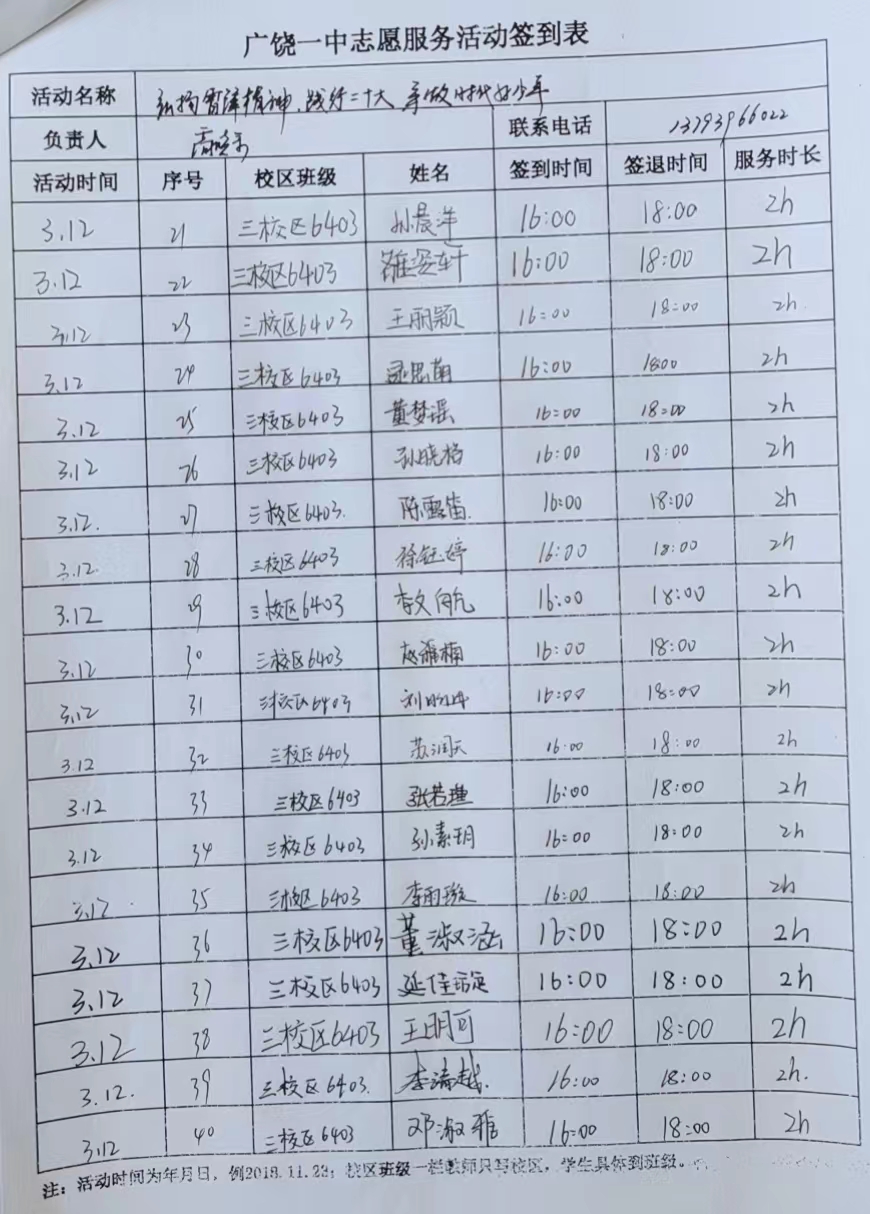 广饶一中志愿服务活动签到表
活动名称 弘扬雷锋精神、践行二十大、争做时代好少年
负责人 联系电话 13793966022
活动时间 序号 校区班级 姓名 签到时间 签退时间 服务时长
3.12 21 三校区6403 孙晨洋 16:00 18:00 2h
3.12 22 三校区6403 16:00 18:00 2h
3.12 23 三校区6403 王丽颖 16:00 18:00 2h
3.12 24 三校区6403 16:00 1800 2h
3.12 25 三校区6403 董梦瑶 16:00 18:00 2h
3.12 26 三校区6403 孙晓格 16:00 18:00 2h
3.12. 27 三校区6403. 陈露笛. 16:00 18:00 2h
3.12. 28 三校区6403 徐钰婷 16:00 18:00 2h
3.12 29 三校区6403 李文航 16:00 18:00 2h
3.12 30 三校区6403 赵雅楠 16:00 18:00 2h
3.12 31 三校区6403 16:00 18:00 2h
3.12 32 三校区6403 苏润天 16:00 18:00 2h
3.12 33 三校区6403 张若瑾 16:00 18:00 2h
3.12 34 三校区6403 孙素玥 16:00 18:00 2h
3.12. 35 三校区6403 李雨璇 16:00 18:00 2h
3.12 36 三校区6403 董淑涵 16:00 18:00 2h
3.12 37 三校区6403 延佳谊 16:00 18:00 2h
3.12 38 三校区6403 王明可 16:00 18:00 2h
3.12. 39 三校区6403. 李清越. 16:00 18:00 2h.
3.12 40 三校区6403 邓淑雅 16:00 18:00 2h
注：活动时间为年月日，例2018.11.23；校区班级一栏教师只写校区，学生具体到班级。